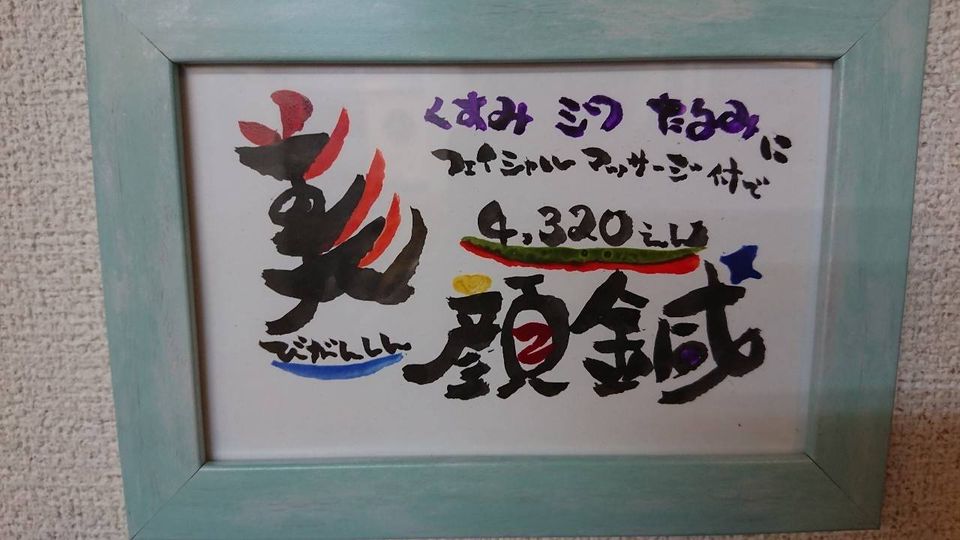 くすみ シワ たるみに
フェイシャルマッサージ付で
4,320えん
美顔鍼
びがんしん